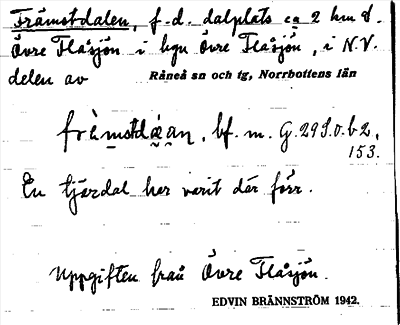 Främstdalen, f.d. dalplats ca 2 km S.
Övre Flåsjön i byn Övre Flåsjön, i N.V.
delen av Råneå sn och tg, Norrbottens län
bf. m. G. 29 S.o.b.2,
153.
En tjärdal har varit där förr.
Uppgiften från Övre Flåsjön.
EDVIN BRÄNNSTRÖM 1942.